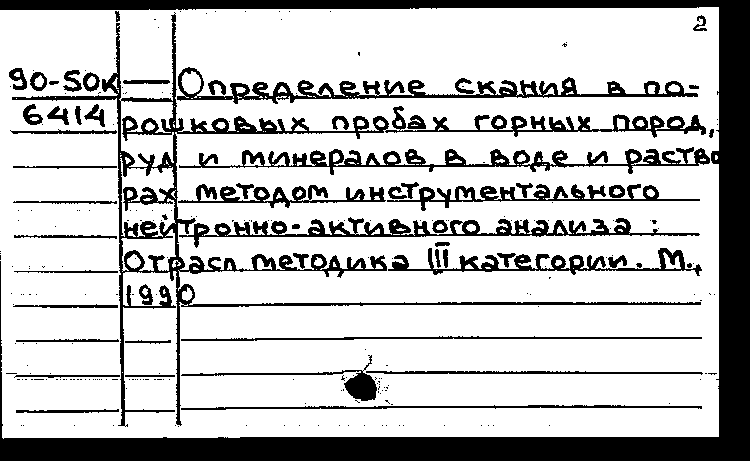 2
90-50к — Определение скания в по-
6414 рошковых пробах горных пород,
руд и минералов, в воде и раство
рах методом инструментального
нейтронно-активного анализа :
Отрасл. методика III категории. М.,
1990